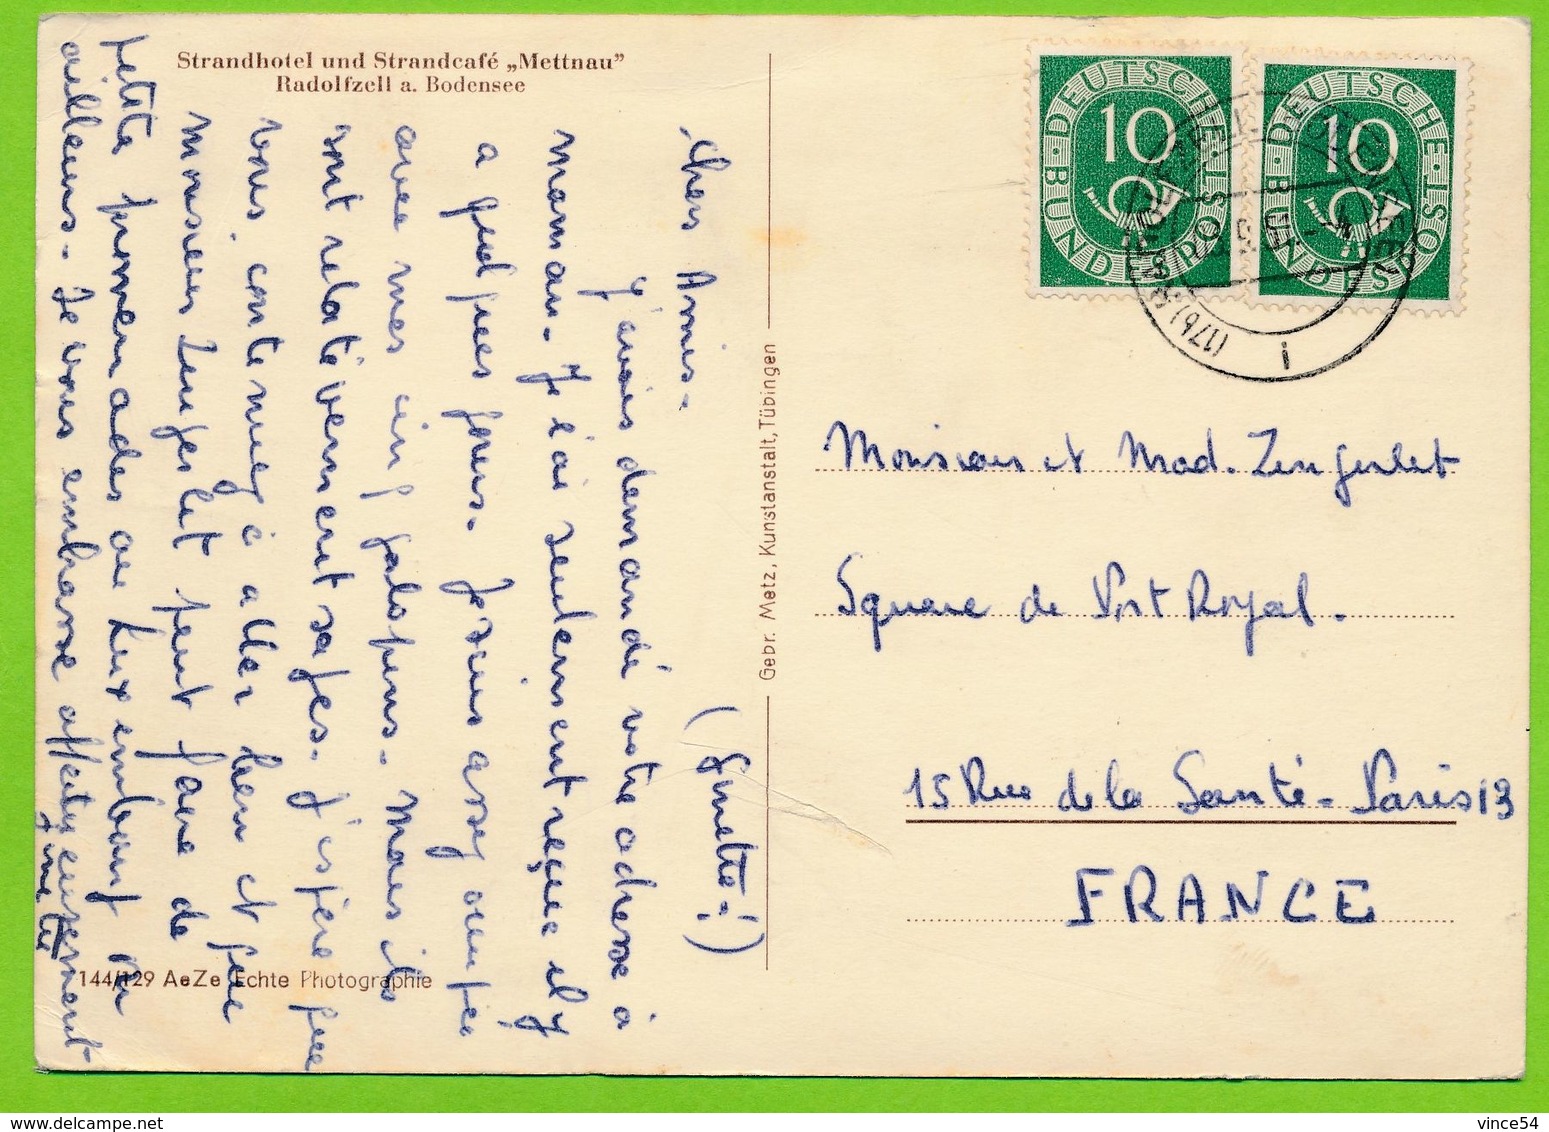 Strandhotel und Strandcafé „Mettnau”
Radolfzell a. Bodensee
Chers Amis. (Ginette!)
J'avais demandé votre adresse à
maman. Je l'ai seulement reçue il y
a quelques jours. Je suis assez occupée
avec mes cinq galopins. Mais ils
sont relativement sages. J'espère que
vous continuez à aller bien et que
monsieur Zengerlet peut faire de
petites promenades au Luxembourg ou
ailleurs. Je vous embrasse affectueusement
Ginette
144/129 AeZe Echte Photographie
Gebr. Metz, Kunstanstalt, Tübingen
DEUTSCHE BUNDESPOST
10
DEUTSCHE BUNDESPOST
10
(17b)
i
Monsieur et Mad. Zengerlet
Square de Port Royal.
15 Rue de la Santé - Paris 13
FRANCE
vince54